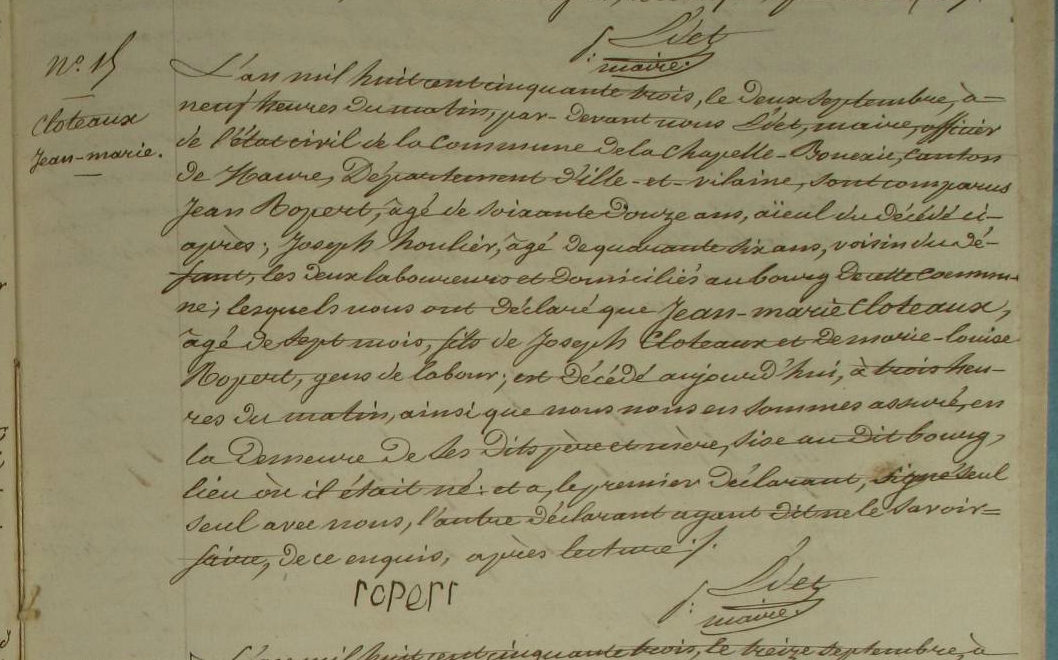 P. Lvet
maire.
n.° 15
Cloteaux
Jean-marie.
L'an mil huit cent cinquante trois, le deux septembre, à
neuf heures du matin, par-devant nous Lvet, maire, officier
de l'état civil de la Commune de la Chapelle-Bouexic, canton
de Maure, Département d'ille-et-vilaine, sont comparus
Jean Ropert, âgé de soixante douze ans, aïeul du décédé ci-
après; Joseph houlier, âgé de quarante six ans, voisin du dé-
funt, les deux laboureurs et domiciliés au bourg de cette commu-
ne; lesquels nous ont déclaré que Jean-marie Cloteaux,
âgé de sept mois, fils de Joseph Cloteaux et de marie-louise
Ropert, gens de labour; est décédé aujourd'hui, à trois heu-
res du matin, ainsi que nous nous en sommes assuré, en
la demeure de ses dits père et mère, sise au dit bourg,
lieu où il était né: et a, le premier déclarant, signé seul
seul avec nous, l'autre déclarant ayant dit ne le savoir=
faire, de ce enquis, après lecture ./.
ropert
P. Lvet
maire.
L'an mil huit cent cinquante trois, le treize septembre, à